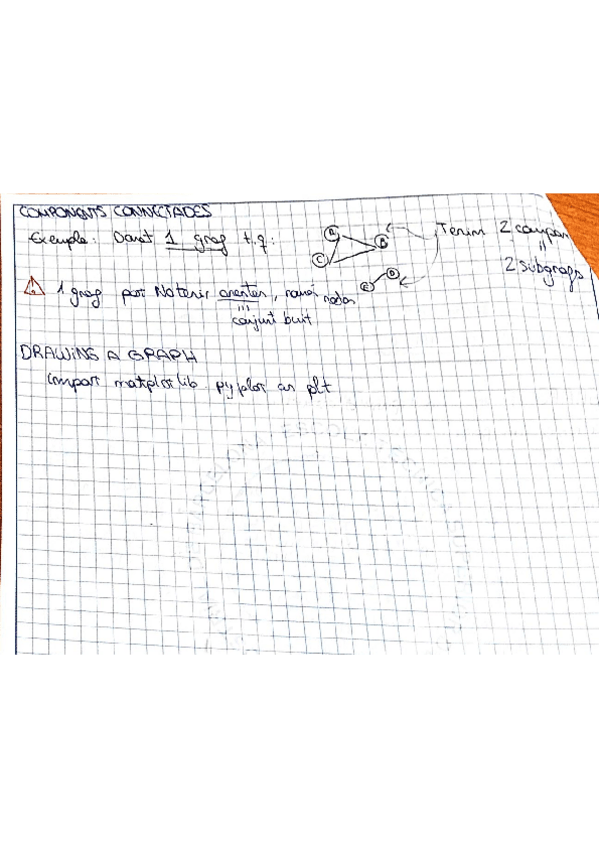 COMPONENTS CONNECTADES
Exemple: Donat 1 graf t.q:
A
B
C
D
E
Tenim 2 compon
"
2 subgrafs
1 graf pot No tenir arestes, només nodes
conjunt buit
DRAWING A GRAPH
import matplotlib.pyplot as plt